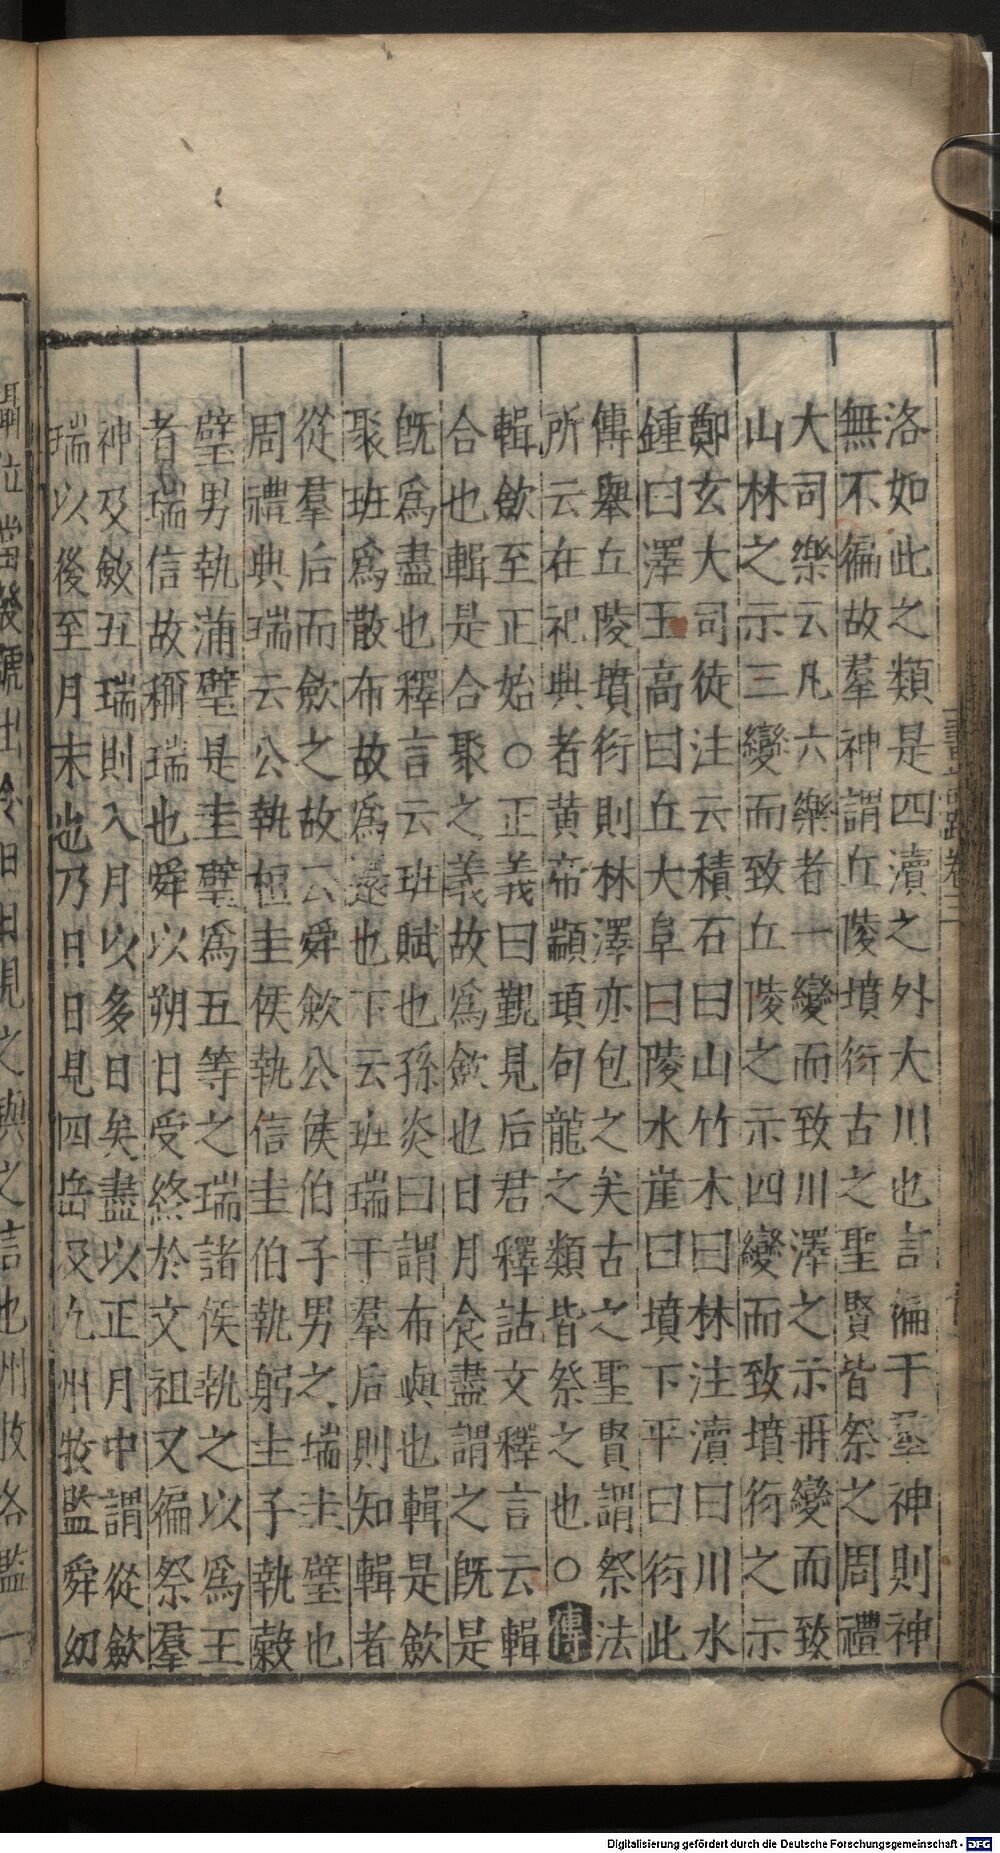 洛如此之類是四瀆之外大川也言徧于羣神則神
無不徧故羣神謂丘陵墳衍古之聖賢皆祭之周禮
大司樂云凡六樂者一變而致川澤之示再變而致
山林之示三變而致丘陵之示四變而致墳衍之示
鄭玄大司徒注云積石曰山竹木曰林注瀆曰川水
鍾曰澤土高曰丘大阜曰陵水崖曰墳下平曰衍此
傳舉丘陵墳衍則林澤亦包之矣古之聖賢謂祭法
所云在祀典者黄帝顓頊句龍之類皆祭之也○傳
輯斂至正始○正義曰覲見后君釋詁文釋言云輯
合也輯是合聚之義故爲斂也日月食盡謂之旣是
旣爲盡也釋言云班賦也孫炎曰謂布與也輯是斂
聚班爲散布故爲還也下云班瑞于羣后則知輯者
從羣后而斂之故云舜斂公侯伯子男之瑞圭璧也
周禮典瑞云公執桓圭侯執信圭伯執躬圭子執榖
璧男執蒲璧是圭璧爲五等之瑞諸侯執之以爲王
者瑞信故稱瑞也舜以朔日受終於文祖又徧祭羣
神及斂五瑞則入月以多日矣盡以正月中謂從斂
瑞以後至月末也乃日日見四岳及九州牧監舜初
書 疏卷三
Digitalisierung gefördert durch die Deutsche Forschungsgemeinschaft - DFG